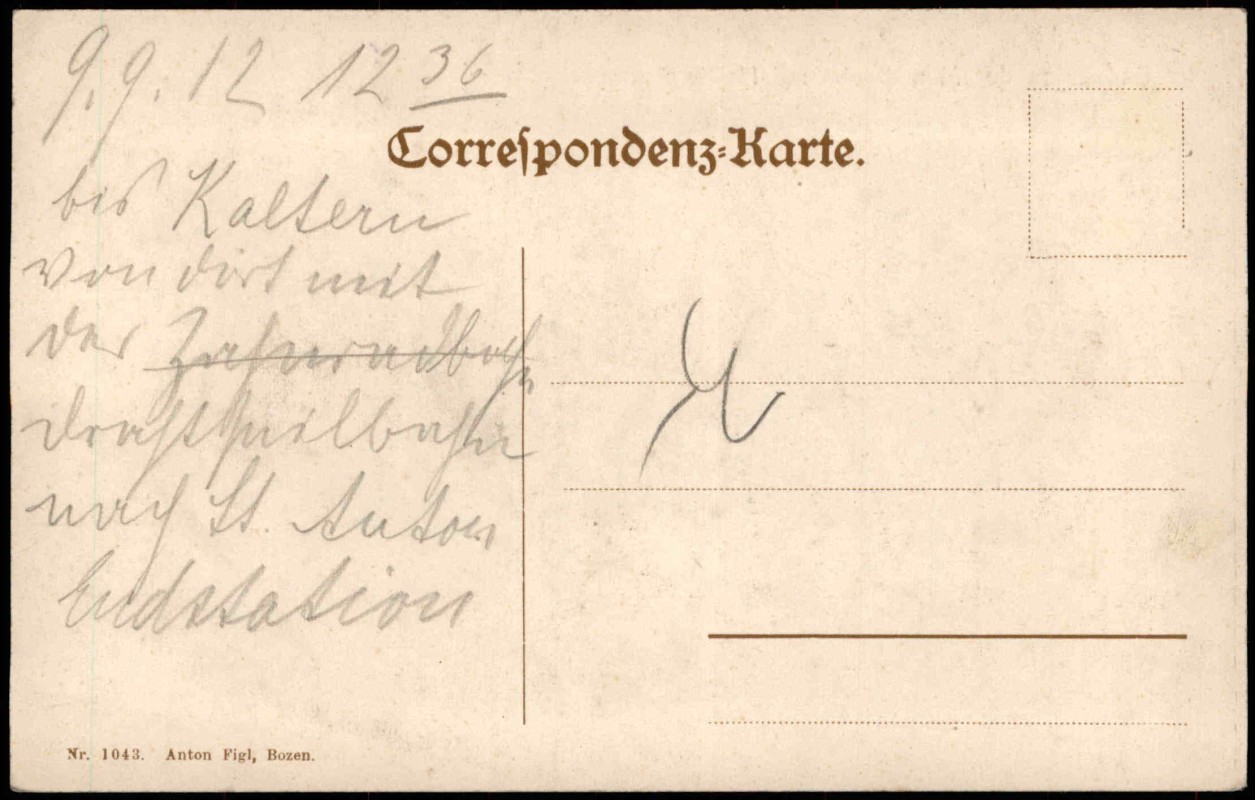 9.9.12 12 36
Correſpondenz-Karte.
bis Kaltern
von dort mit
der Zahnradbahn
Drahtseilbahn
nach St. Anton
Endstation
Nr. 1043. Anton Figl, Bozen.